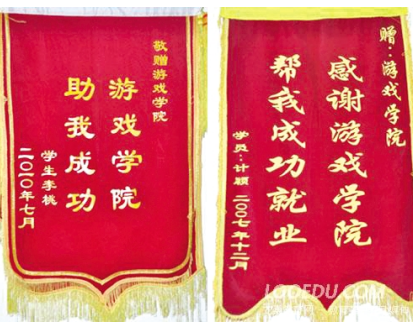 敬赠游戏学院
游戏学院
助我成功
学生李桃
二〇一〇年七月
赠：游戏学院
感谢游戏学院
帮我成功就业
学员：计颖
二〇〇七年十二月
LOGEDU.COM